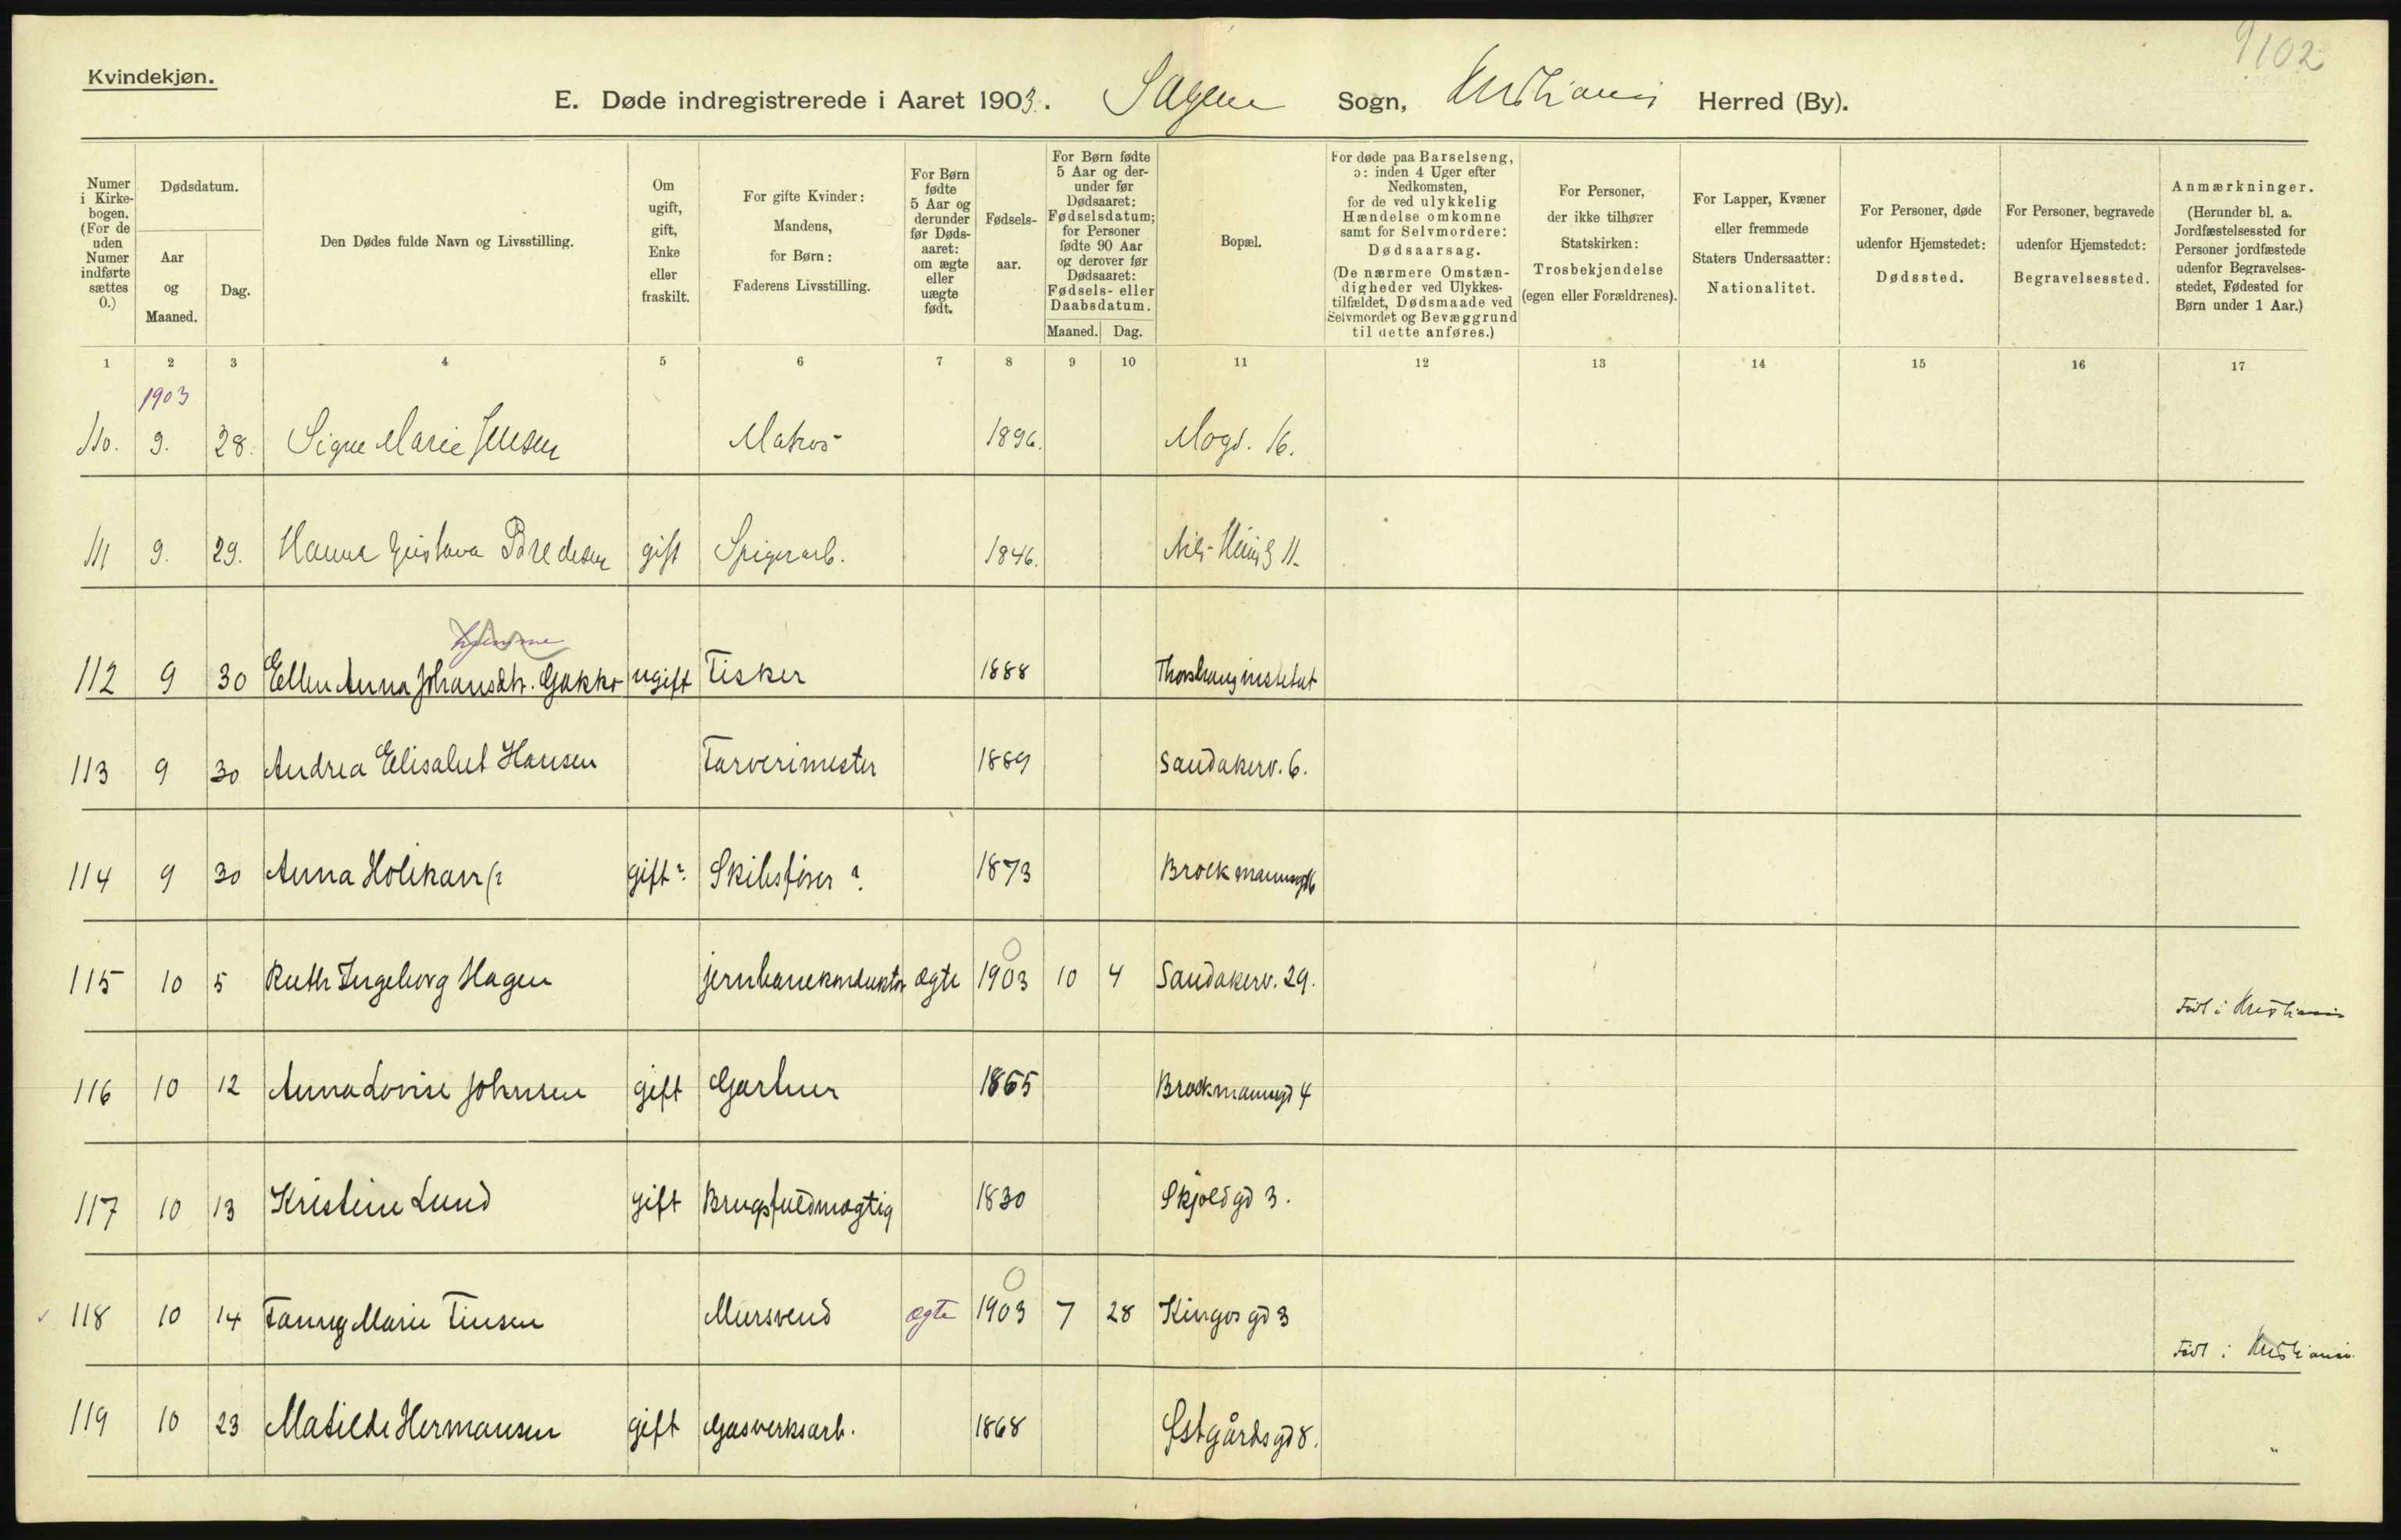 9102
Kvindekjøn.
E. Døde indregistrerede i Aaret 1903. Sagene Sogn, Kristiania Herred (By).
Numer i Kirkebogen. (For de uden Numer indførte sættes 0.)
Dødsdatum.
Aar og Maaned.
Dag.
Den Dødes fulde Navn og Livsstilling.
Om ugift, gift, Enke eller fraskilt.
For gifte Kvinder: Mandens, for Børn: Faderens Livsstilling.
For Børn fødte 5 Aar og derunder før Dødsaaret: om ægte eller uægte født.
Fødselsaar.
For Børn fødte 5 Aar og derunder før Dødsaaret: Fødselsdatum; for Personer fødte 90 Aar og derover før Dødsaaret: Fødsels- eller Daabsdatum.
Maaned. Dag.
Bopæl.
For døde paa Barselseng, ɔ: inden 4 Uger efter Nedkomsten, for de ved ulykkelig Hændelse omkomne samt for Selvmordere: Dødsaarsag. (De nærmere Omstændigheder ved Ulykkestilfældet, Dødsmaade ved Selvmordet og Bevæggrund til dette anføres.)
For Personer, der ikke tilhører Statskirken: Trosbekjendelse (egen eller Forældrenes).
For Lapper, Kvæner eller fremmede Staters Undersaatter: Nationalitet.
For Personer, døde udenfor Hjemstedet: Dødssted.
For Personer, begravede udenfor Hjemstedet: Begravelsessted.
Anmærkninger. (Herunder bl. a. Jordfæstelsessted for Personer jordfæstede udenfor Begravelsesstedet, Fødested for Børn under 1 Aar.)
1 2 3 4 5 6 7 8 9 10 11 12 13 14 15 16 17
1903
110. 9. 28. Signe Marie Jensen Matros 1896. Mogd. 16.
111 9. 29. Hanna Gustava Bredesen gift Spigerarb. 1846. 11.
hjemme
112 9 30 Ellen Anna Johansdtr. Gakko ugift Fisker 1888
113 9 30 Andrea Elisabet Hansen Farverimester 1889 Sandakerv. 6.
114 9 30 Anna gift? Skibsfører? 1873 Brockmannsgd 16
115 10 5 Ruth Ingeborg Hagen jernbanekonduktør ægte 1903 10 4 Sandakerv. 29. Født i Kristiania
116 10 12 Anna Lovise Johnsen gift Gartner 1865 Brockmannsgd 4
117 10 13 Kristine Lund gift Brugsfuldmægtig 1830 Skjoldgd 3.
118 10 14 Fanny Marie Finsen Mursvend ægte 1903 7 28 Kingosgd 3 Født i Kristiania.
119 10 23 Matilde Hermansen gift Gasverksarb. 1868 Østgårdsgd 8. "